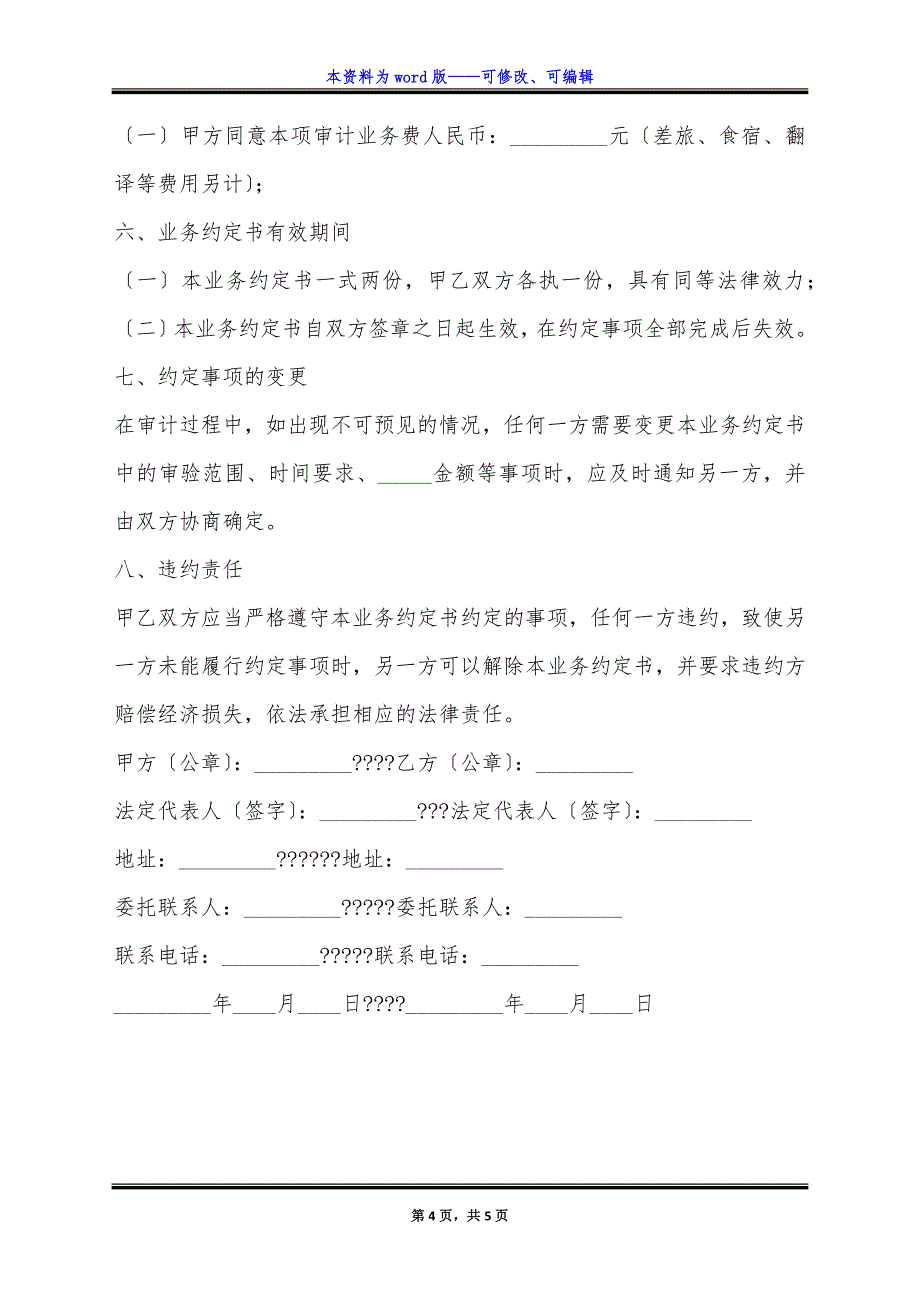 本资料为 word 版——可修改、可编辑
〔一〕甲方同意本项审计业务费人民币：_________元〔差旅、食宿、翻
译等费用另计〕；
六、业务约定书有效期间
〔一〕本业务约定书一式两份，甲乙双方各执一份，具有同等法律效力；
〔二〕本业务约定书自双方签章之日起生效，在约定事项全部完成后失效。
七、约定事项的变更
在审计过程中，如出现不可预见的情况，任何一方需要变更本业务约定书
中的审验范围、时间要求、_____金额等事项时，应及时通知另一方，并
由双方协商确定。
八、违约责任
甲乙双方应当严格遵守本业务约定书约定的事项，任何一方违约，致使另
一方未能履行约定事项时，另一方可以解除本业务约定书，并要求违约方
赔偿经济损失，依法承担相应的法律责任。
甲方〔公章〕：_________????乙方〔公章〕：_________
法定代表人〔签字〕：_________???法定代表人〔签字〕：_________
地址：_________??????地址：_________
委托联系人：_________?????委托联系人：_________
联系电话：_________?????联系电话：_________
_________年____月____日????_________年____月____日
第 4 页，共 5 页